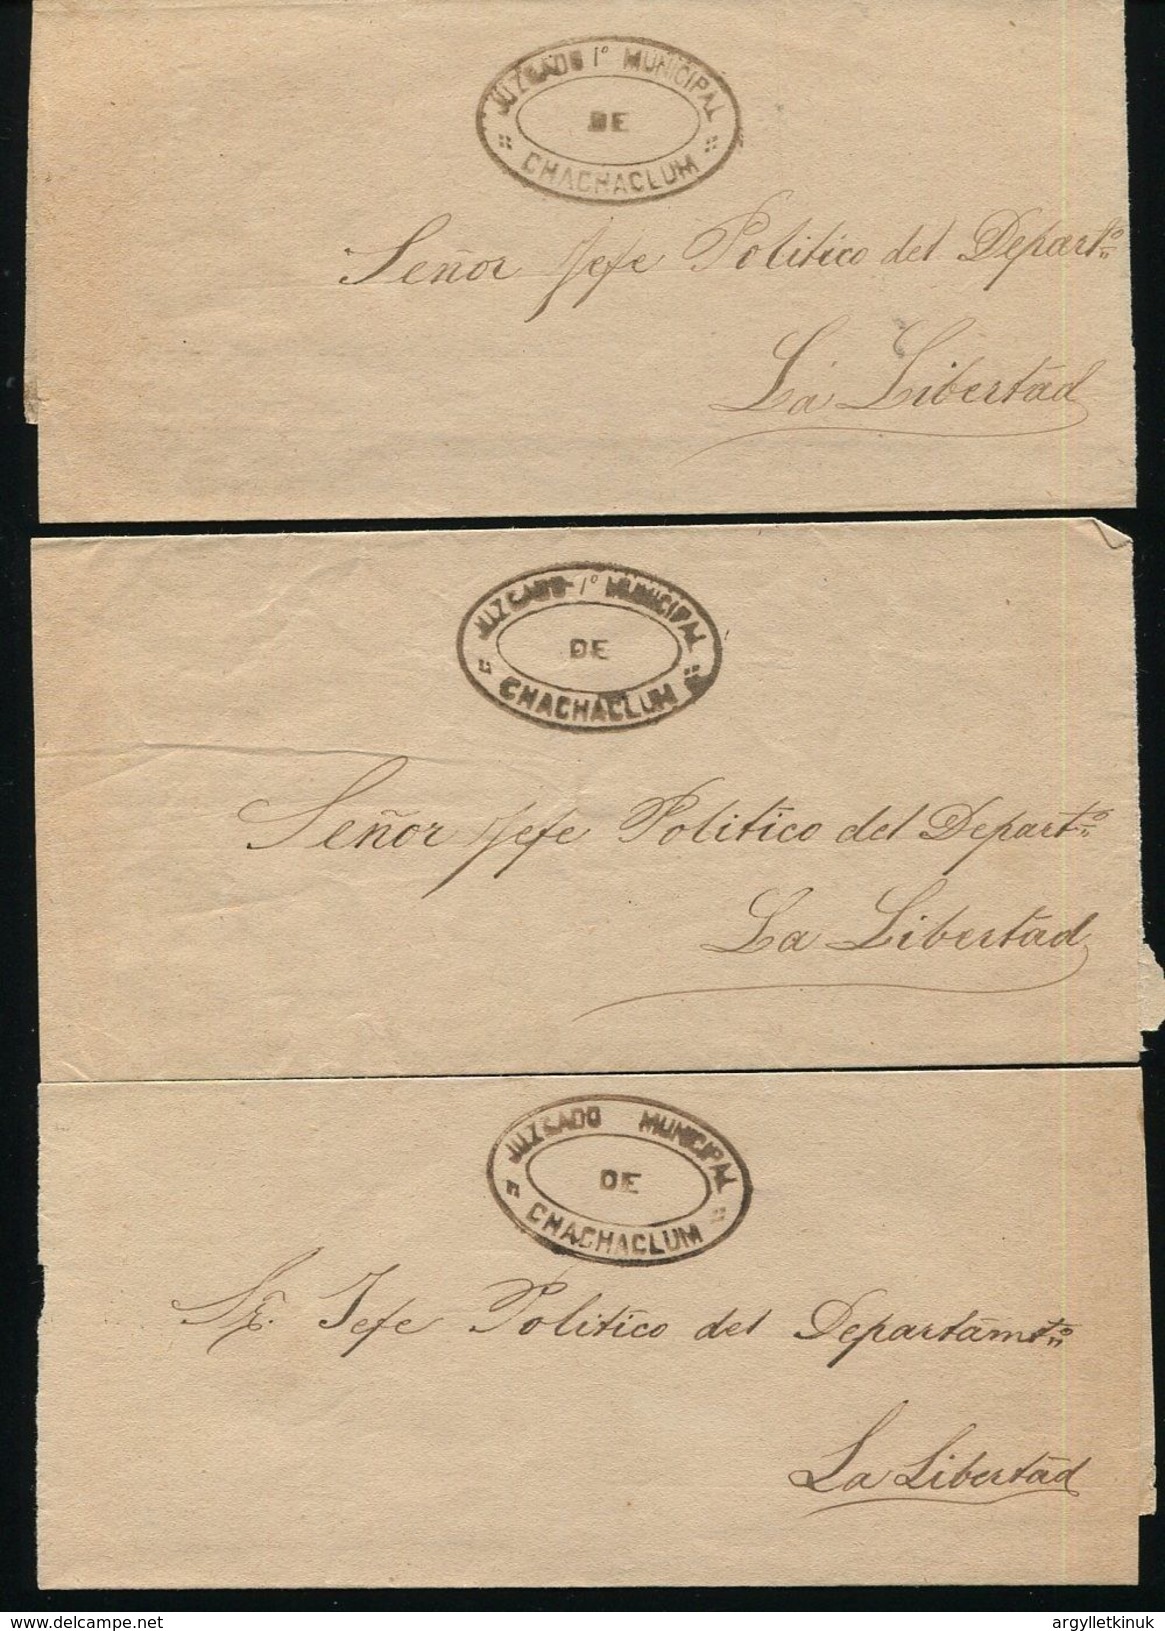 JUZGADO 1° MUNICIPAL
DE
CHACHACLUM
Señor Jefe Politico del Departto
La Libertad
JUZGADO 1° MUNICIPAL
DE
CHACHACLUM
Señor Jefe Politico del Departto
La Libertad
JUZGADO MUNICIPAL
DE
CHACHACLUM
Sr. Jefe Politico del Departamto
La Libertad
argylletkinuk